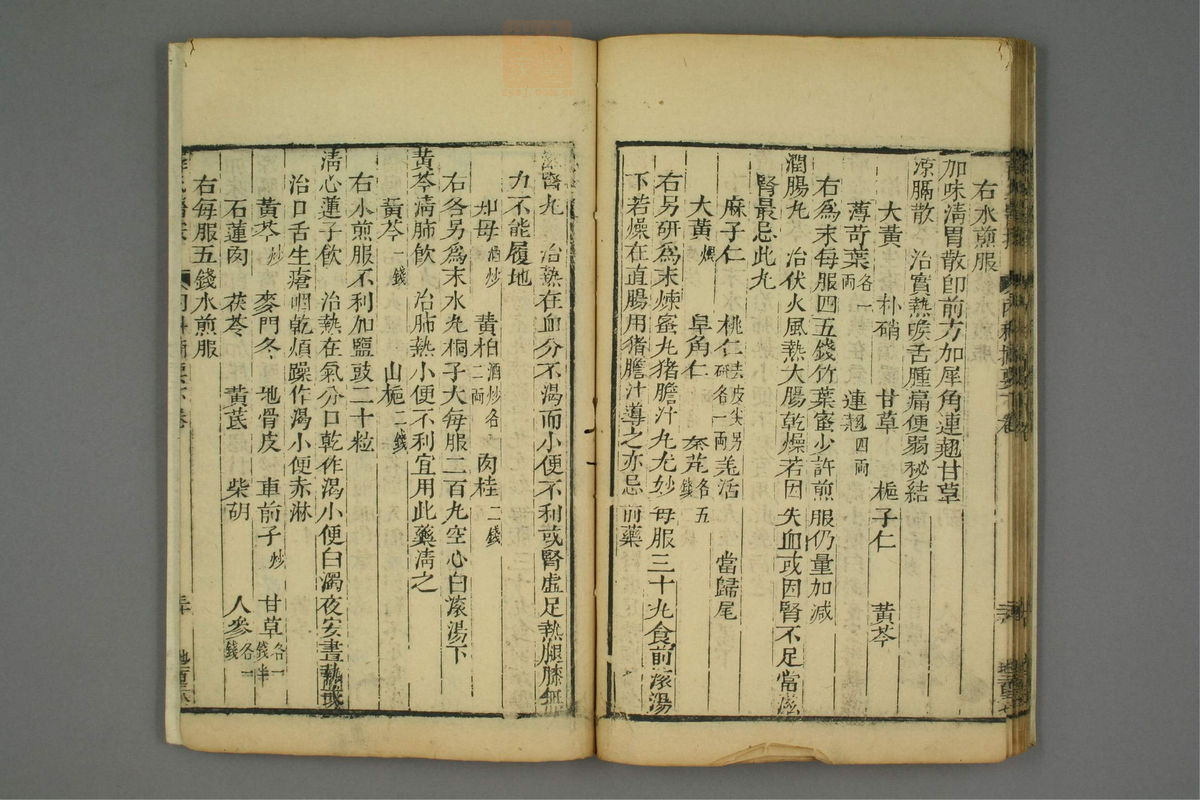 右水煎服
加味清胃散卽前方加犀角連翹甘草
涼膈散　治實熱喉舌腫痛便溺秘結
大黃　朴硝　甘草　梔子仁　黃芩
薄苛葉各一兩　連翹四兩
右為末每服四五錢竹葉蜜少許煎服仍量加減
潤腸丸　治伏火風熱大腸乾燥若因失血或因腎不足當滋
腎最忌此丸
麻子仁　桃仁去皮尖另研各一兩　羌活　當歸尾
大黃煨　皐角仁　秦艽各五錢
右另研為末煉蜜丸猪膽汁丸尤妙每服三十丸食前滚湯
下若燥在直腸用猪膽汁導之亦忌前藥
滋腎丸　治熱在血分不渴而小便不利或腎虛足熱腿膝無
力不能履地
知母酒炒　黃柏酒炒各二兩　肉桂二錢
右各另為末水丸桐子大每服二百丸空心白滚湯下
黃芩清肺飲　治肺熱小便不利宜用此藥清之
黃芩一錢　山梔二錢
右水煎服不利加鹽豉二十粒
清心蓮子飲　治熱在氣分口乾作渴小便白濁夜安晝熱或
治口舌生瘡咽乾煩躁作渴小便赤淋
黃芩炒　麥門冬　地骨皮　車前子炒　甘草各一錢半
石蓮肉　茯苓　黃芪　柴胡　人參各一錢
右每服五錢水煎服